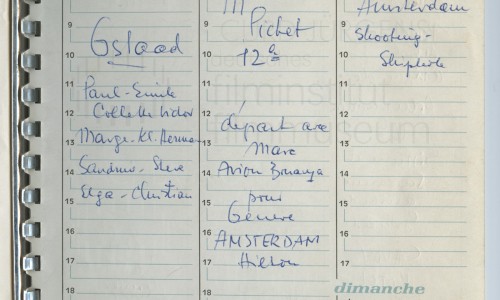 Gstaad
Paul-Emile
Colette Victor
Marge. Kl. Herman
Sandrine - Steve
Elga - Christian
Pichet
12 a
départ avec
Marc
Avion Bonanza
pour
Genève
AMSTERDAM
Hilton
Amsterdam
Shooting-
9
10
11
12
13
14
15
16
17
18
9
10
11
12
13
14
15
16
17
18
9
10
11
12
13
14
15
16
17
dimanche
18